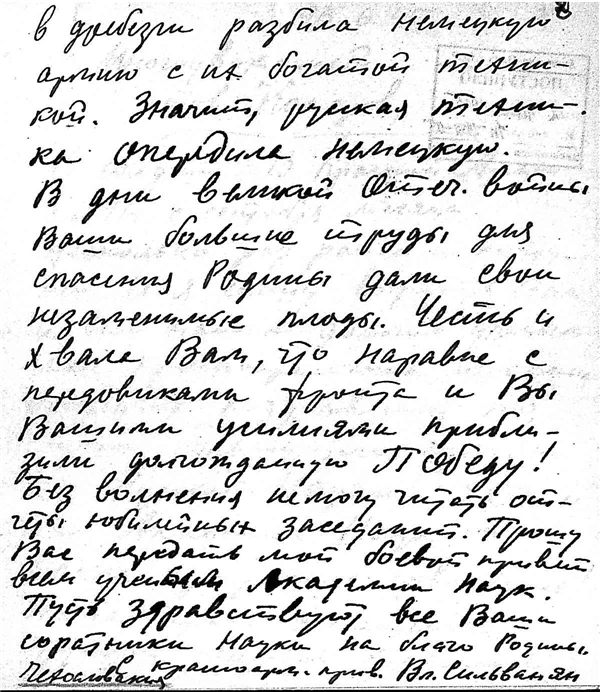 в дребезги разбила немецкую
армию с их богатой техни-
кой. Значит, руская техни-
ка опередила немецкую.
В дни великой Отеч. войны
Ваши большие труды для
спасения Родины дали свои
незаменимые плоды. Честь и
хвала Вам, что наравне с
передовиками фронта и Вы
Вашими усилиями прибли-
зили долгожданную Победу!
Без волнения немогу читать от-
четы юбилейных заседаний. Прошу
Вас передать мой боевой привет
всем ученым Академии Наук.
Пусть здравствуют все Ваши
соратники науки на благо Родины.
Чехословакия Красноарм. Вл. Сильванян
ПОСТУПИЛО